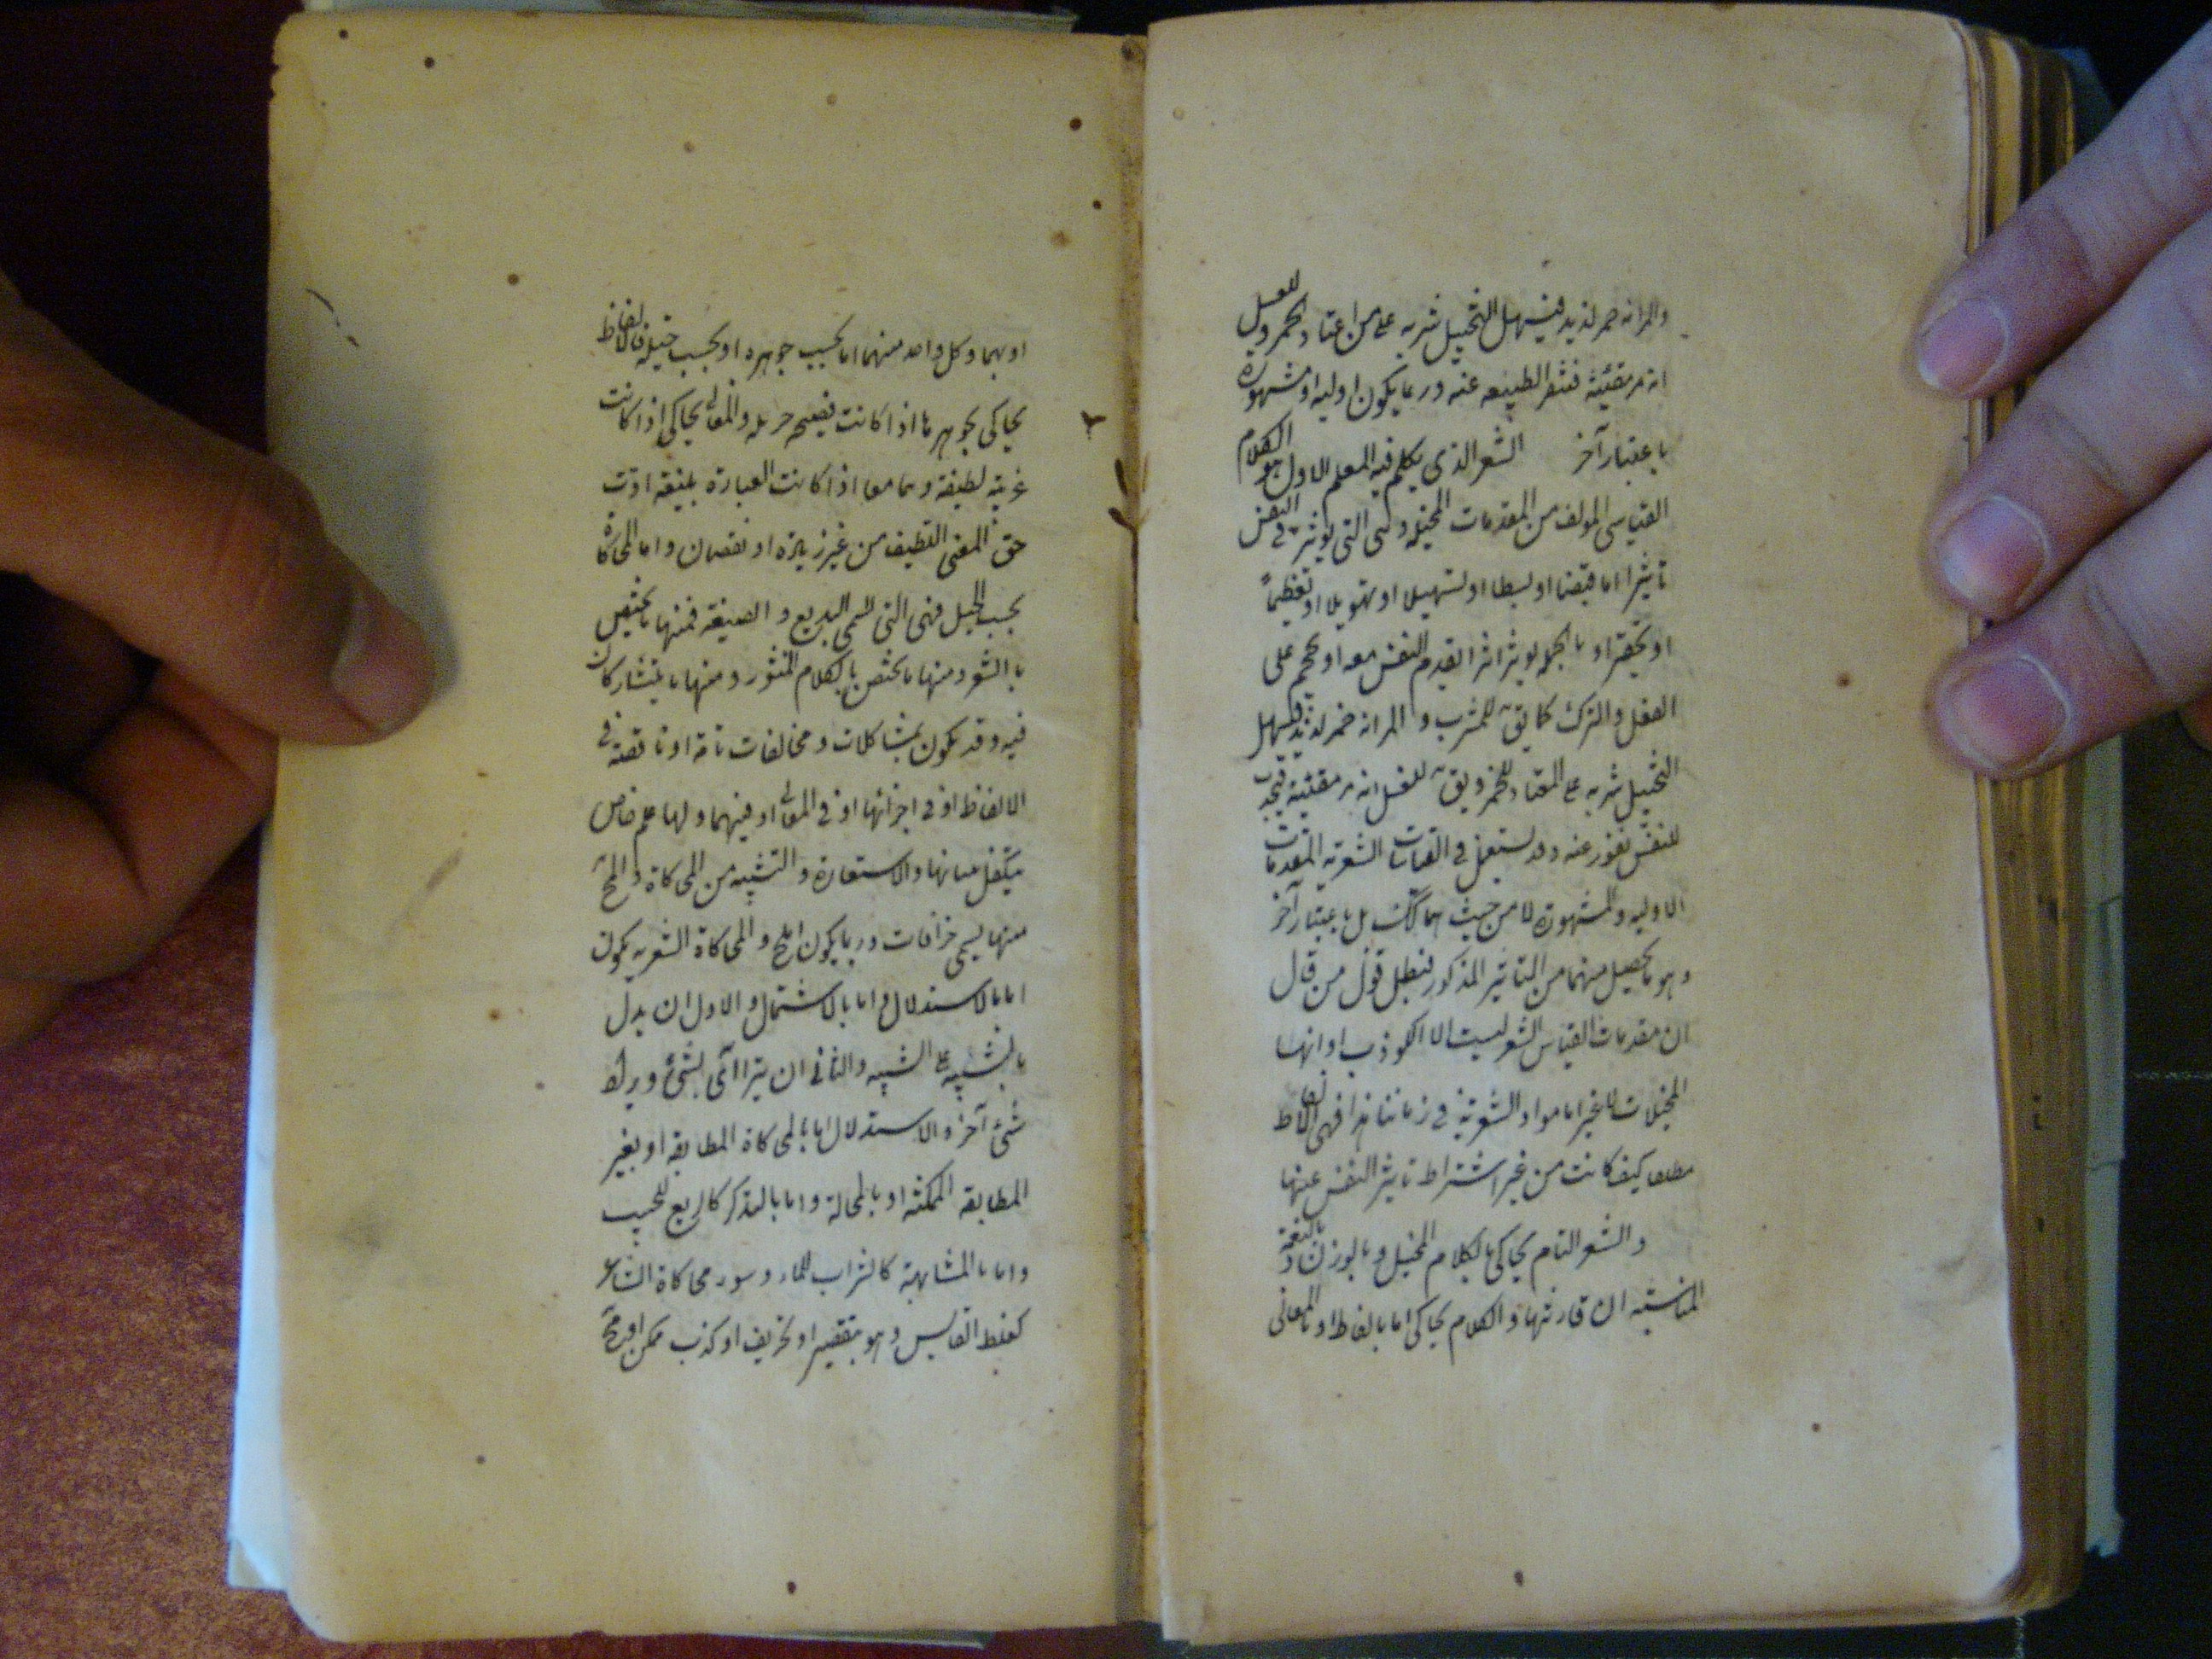 والمرانه خمر لذيذ فيسهل التخيل شربه على من اعتاد الخمر وللعسل
انه مر مقيئة فتنفر الطبيعه عنه وربما يكون اوليه او مشهورة
باعتبار آخر الشعر الذى يكلم فيه المعلم الاول هو الكلام
القياسى المولف من المقدمات المخيله وهى التى يوثر فى النفس
تاثيرا اما قبضا او بسطا او تسهيلا او تهويلا او تعظيماً
او تحقيرا وبالجمله يوثر اثرا يقدم النفس معه او يحجم على
الفعل والترك كما يق للشرب والمرانه خمر لذيذ فيسهل
التخيل شربه على المعتاد للخمر ويق للعسل انه مر مقيئة فيحدث
للنفس نفور عنه وقد يستعمل فى القياسات الشعريه المقدمات
الاوليه والمشهورة لا من حيث هما كك بل باعتبار آخر
وهو ما يحصل منهما من التاثير المذكور فبطل قول من قال
ان مقدمات القياس الشعر ليست الا الكواذب او انها
المخيلات لا غير اما مواد الشعرية فى زماننا هذا فهى الالفاظ
مطلقا كيف كانت من غير اشتراط تاثير النفس عنها
والشعر التام يحاكى بالكلام المخيل وبالوزن وبالنغمة
المناسبة ان قارنتها والكلام يحاكى اما بالفاظ او بالمعانى
او بهما وكل واحد منهما اما بحسب جوهره او بحسب حيلة فالالفاظ
يحاكى بجوهرها اذا كانت فصيحه جزيله والمعانى يحاكى اذا كانت
غريبة لطيفة وهما معا اذا كانت العبارة بليغة ادت
حق المعنى اللطيف من غير زيادة او نقصان واما المحاكاة
بحسب الحيل فهى التى تسمى البديع والصنيعة فمنها ما يختص
بالشعر ومنها ما يختص بالكلام المنثور ومنها ما يتشاركان
فيه وقد يكون بمشاكلات ومخالفات تامة او ناقصة فى
الالفاظ او فى اجزائها او فى المعانى او فيهما ولها علم خاص
يتكفل بيانها والاستعارة والتشبيه من المحاكاة والمح
منها يسمى خرافات وربما يكون املح والمحاكاة الشعريه يكون
اما بالاستدلال واما بالاشتمال والاول ان يدل
بالشبيه على الشبيه والثانى ان يترا آى بشئ ويراد
شئ آخر والاستدلال اما بالمحاكاة المطابقه او بغير
المطابقه الممكنه او بالمحالة واما بالتذكر كالربع للحبيب
واما بالمشابهة كالشراب للماء وسوء محاكاة الشاعر
كغلط القايس وهو بتقصير او تحريف او كذب ممكن او مح